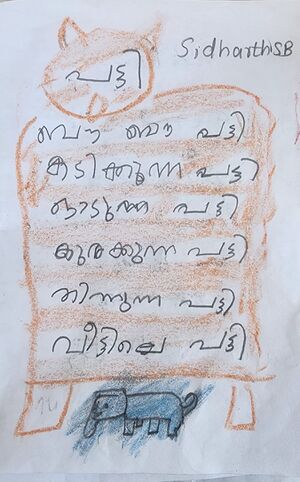 Sidharth SB
പട്ടി
ബൌ ബൌ പട്ടി
കടിക്കുന്ന പട്ടി
ഓടുന്ന പട്ടി
കുരക്കുന്ന പട്ടി
തിന്നുന്ന പട്ടി
വീട്ടിലെ പട്ടി